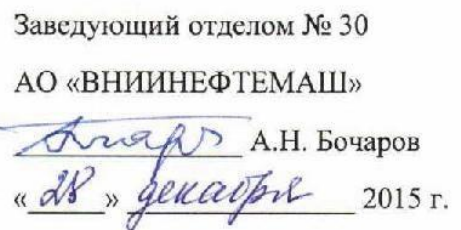 Заведующий отделом № 30
АО «ВНИИНЕФТЕМАШ»
А.Н. Бочаров
«28» декабря 2015 г.